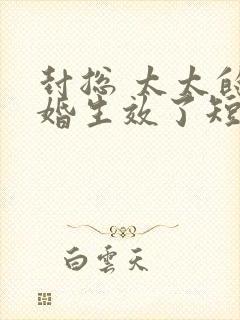 封总 太太的
婚生效了短
白雲天